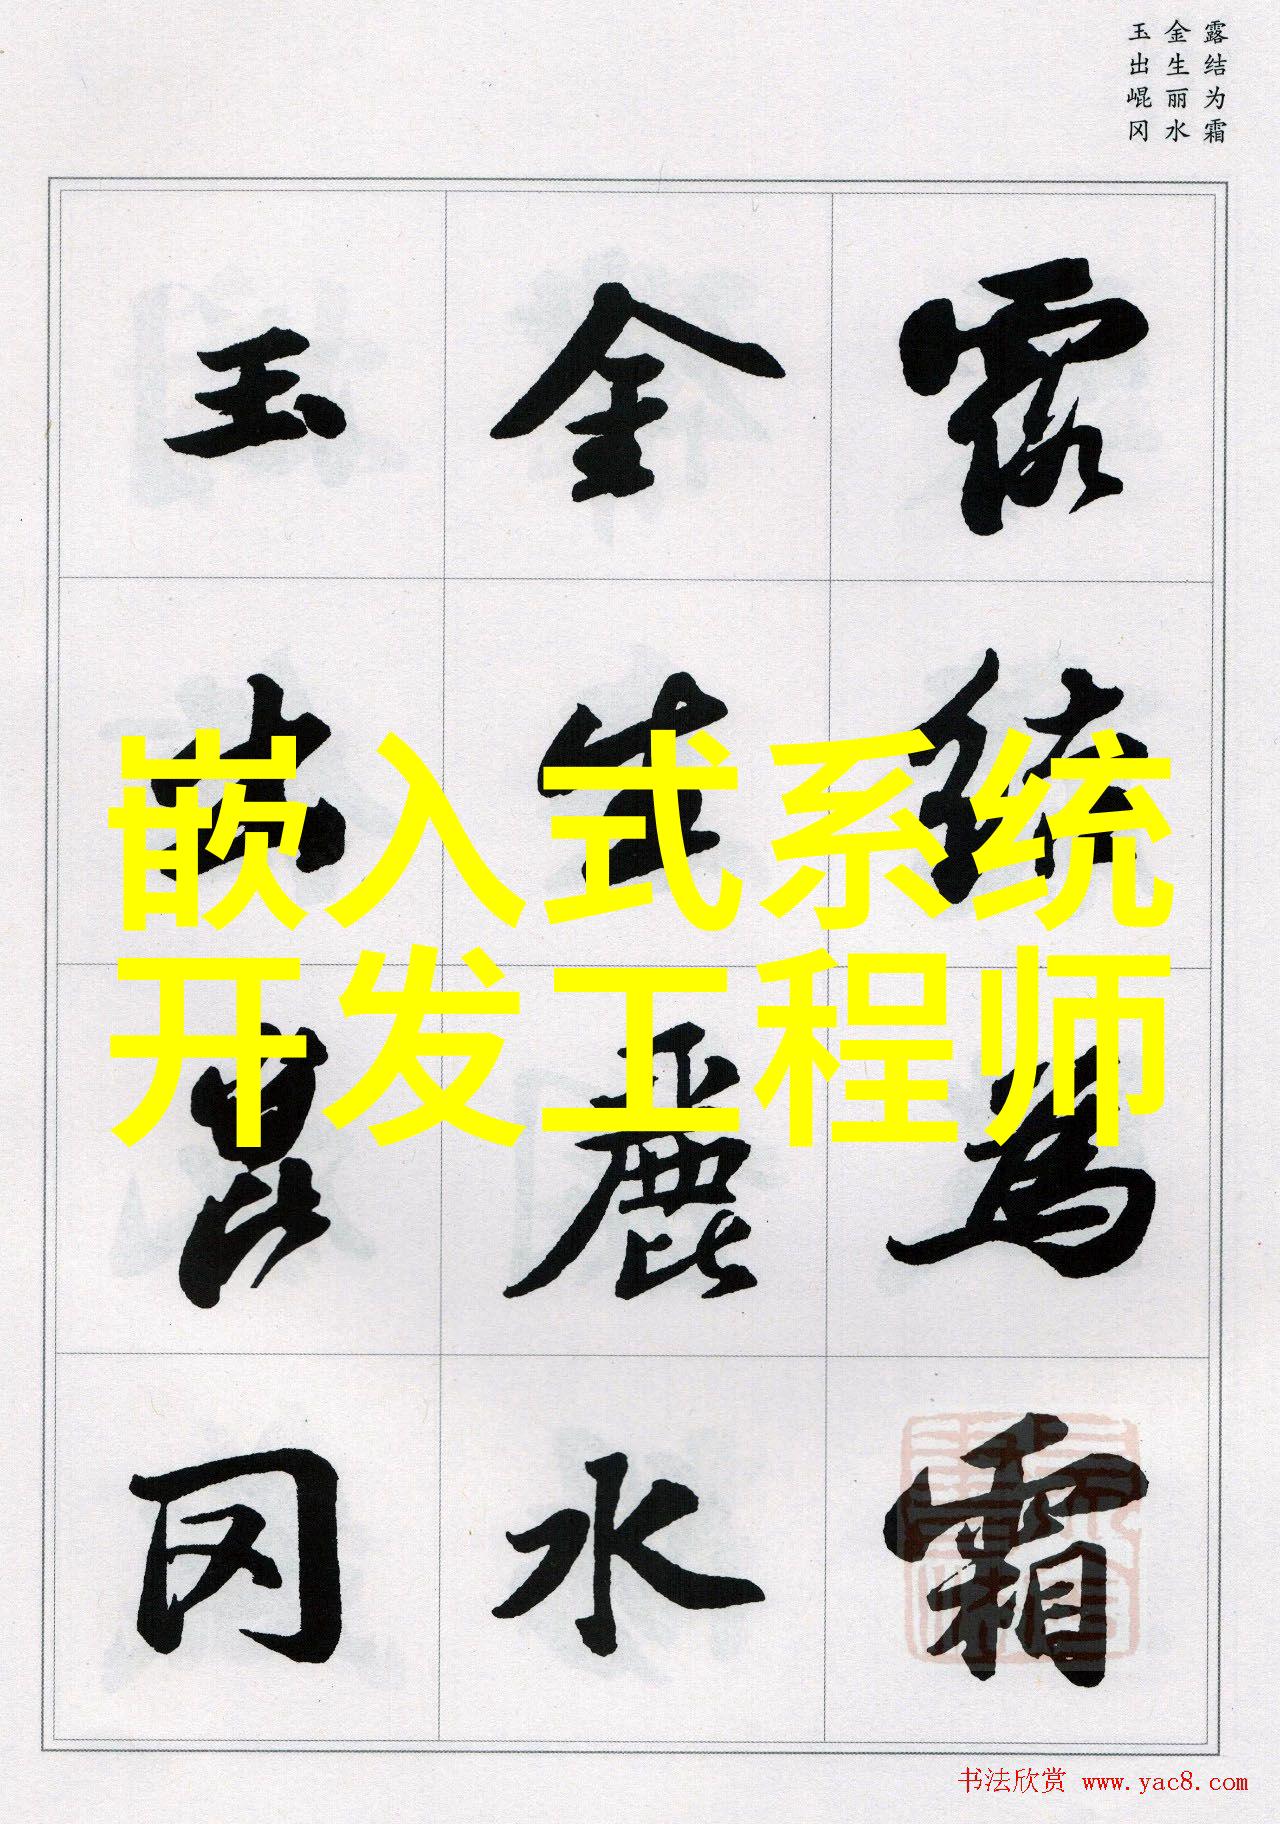 露结为霜
金生丽水
玉出崐冈
露結為霜
金生麗水
玉出崑冈
嵌入式系统
开发工程师
书法欣赏 www.yac8.com